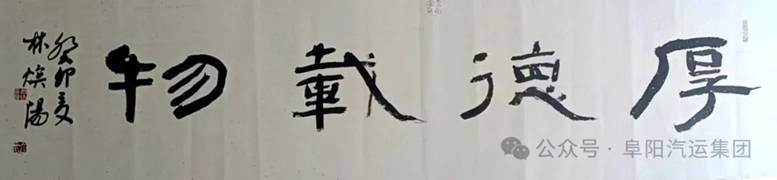 厚德載物
癸卯夏
林焕阳
公众号·阜阳汽运集团